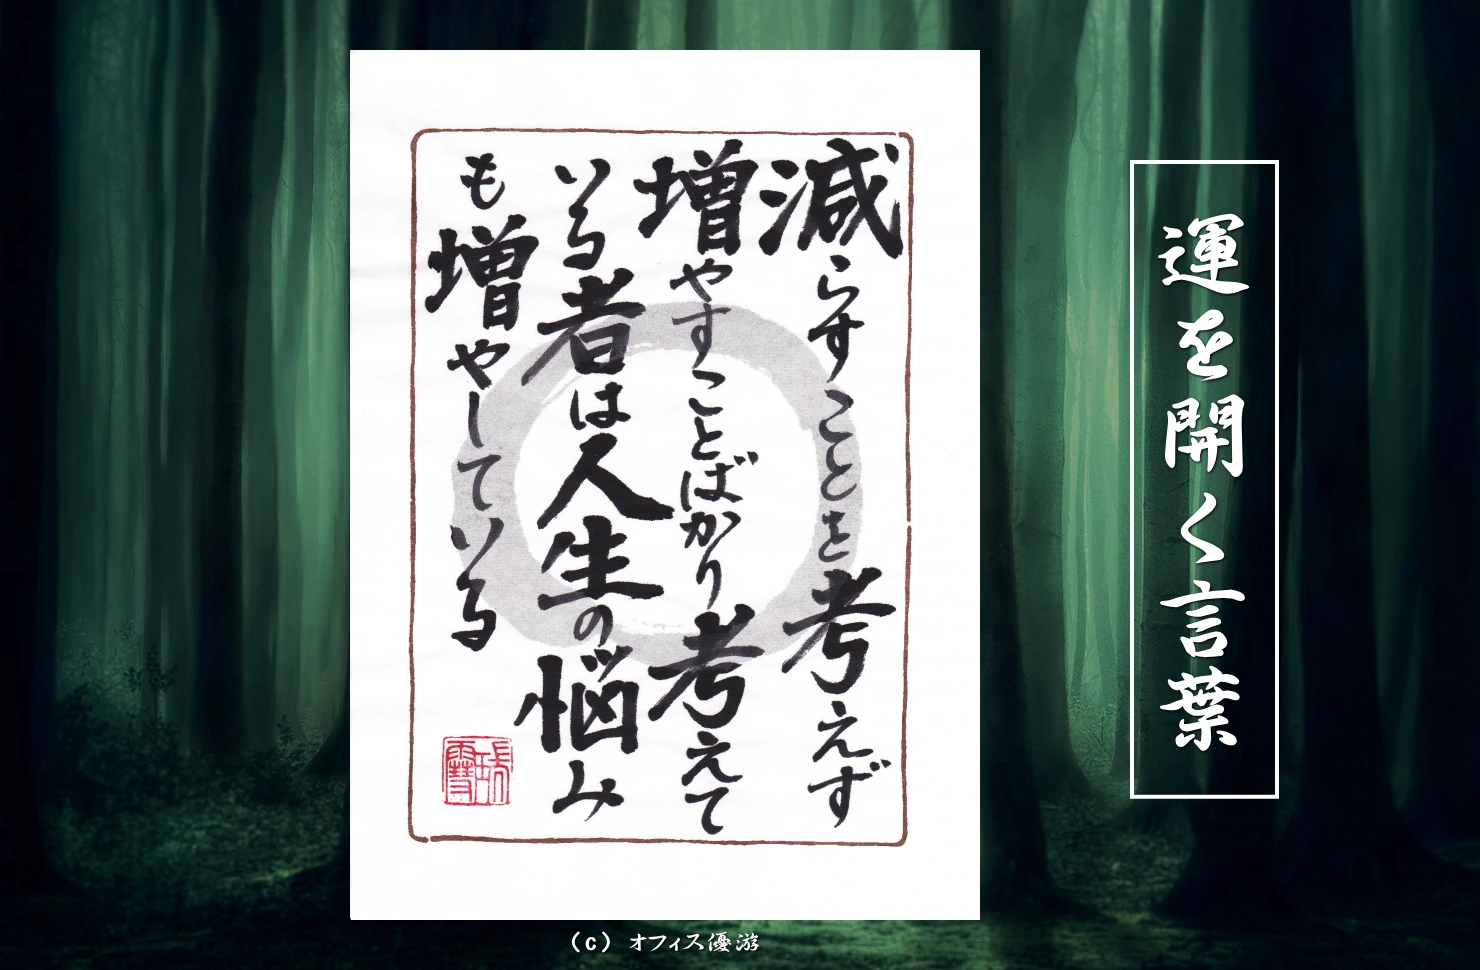 減らすことを考えず
増やすことばかり考えて
いる者は人生の悩み
も増やしている
運を開く言葉
(c) オフィス優游